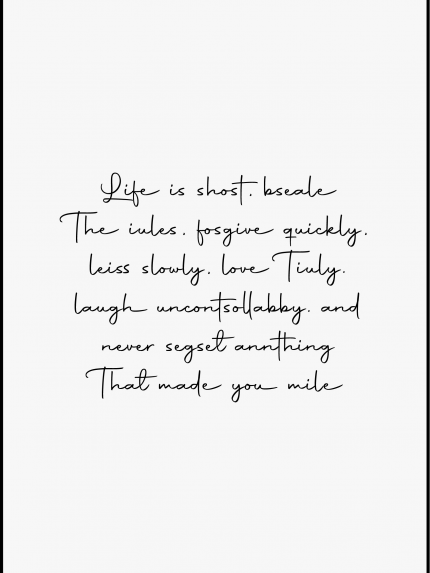 Life is shost. bseale
The iules. fosgive quickly.
leiss slowly. love Tiuly.
laugh uncontsollabby. and
never segset annthing
That made you mile